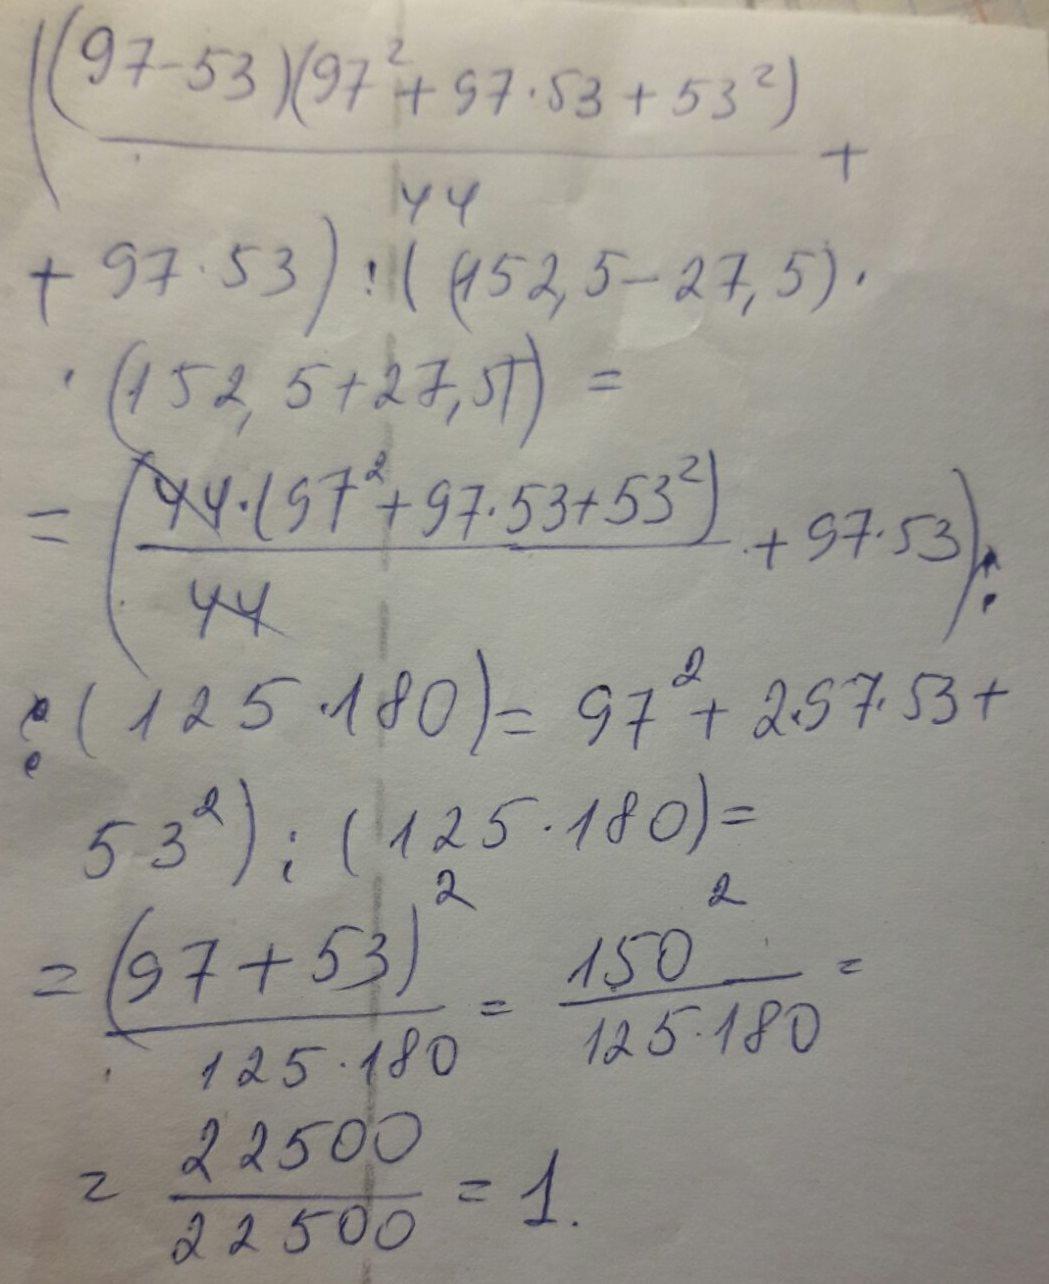 ((97-53)(97²+97·53+53²)
44
+
+97·53):((152,5-27,5)·
·(152,5+27,5))=
=(44·(97²+97·53+53²)
44
+97·53):
:(125·180)=97²+2·97·53+
53²):(125·180)=
=(97+53)²
125·180
=
150²
125·180
=
=
22500
22500
=1.